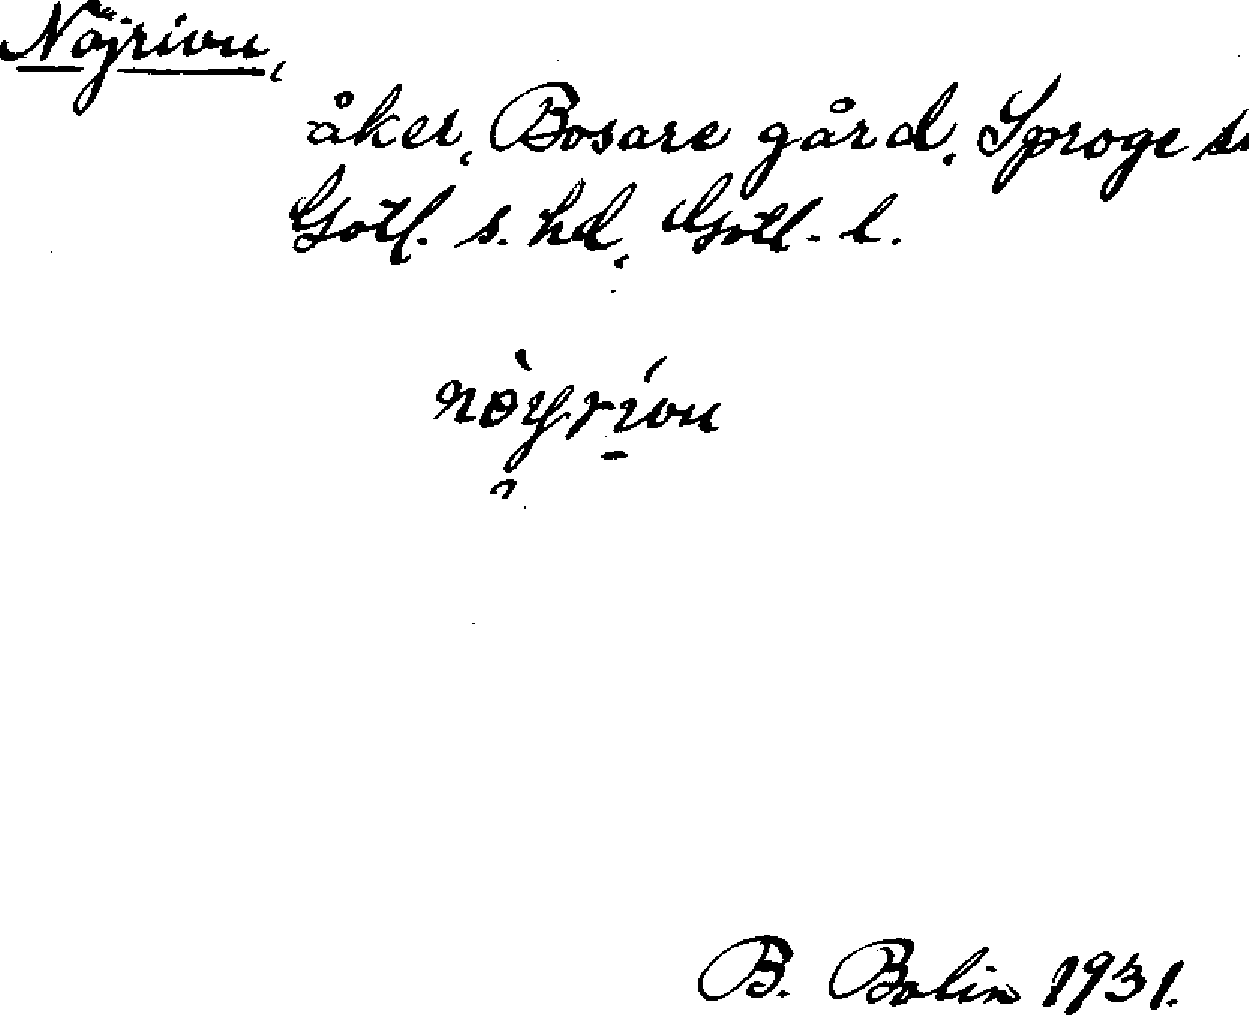 Nöjrivu,
åker, Bosare gård, Sproge s
Gotl. s. hd, Gotl. l.
B. Bolin 1931.